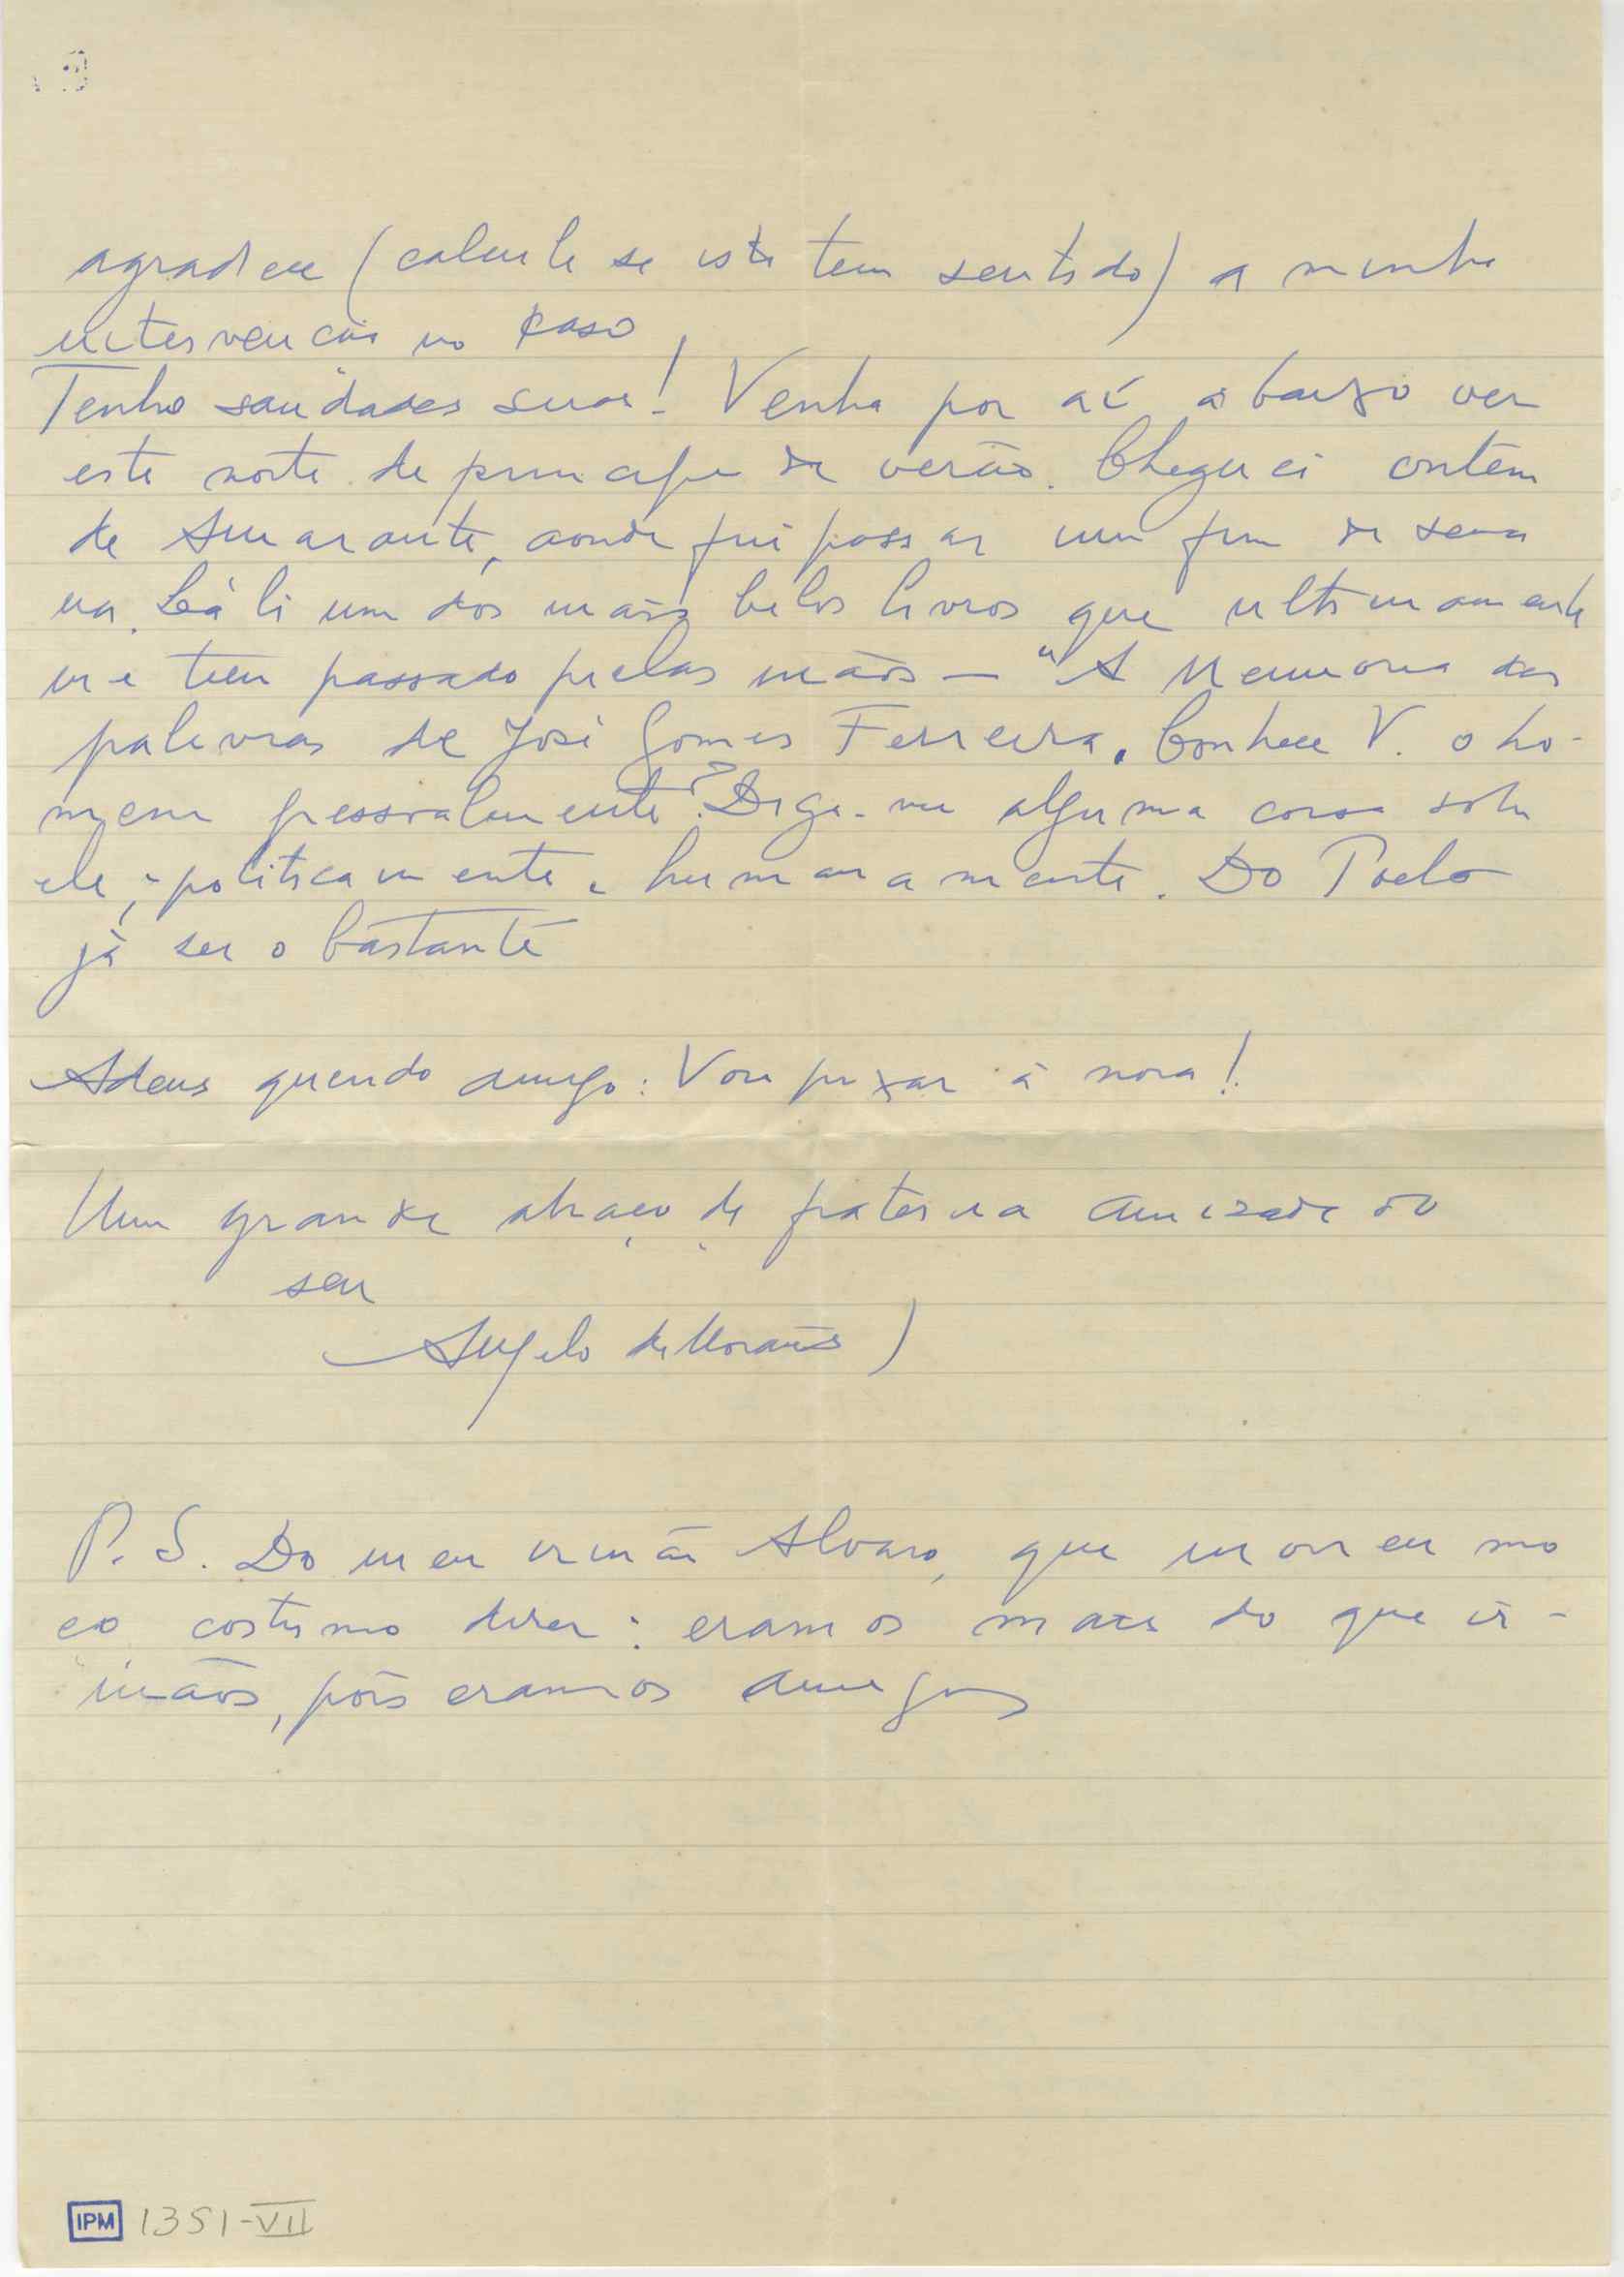 agradece (calcule se isto tem sentido) a minha
intervenção no caso
Tenho saudades suas! Venha por aí abaixo ver
este norte de principio de verão. Cheguei ontem
de Amarante, aonde fui passar um fim de sema
na. Lá li um dos mais belos livros que ultimamente
me tem passado pelas mãos — "A Memoria das
palavras de José Gomes Ferreira. Conhece V. o ho-
mem pessoalmente? Diga-me alguma coisa sobre
ele, politicamente e humanamente. Do Poeta
já sei o bastante
Adeus querido amigo: Vou puxar à nora!
Um grande abraço de fraterna amizade do
seu
Angelo de Morais
P. S. Do meu irmão Alvaro, que morreu mo
ço costumo dizer: eramos mais do que ir-
mãos, pois eramos amigos
IPM 1351-VII